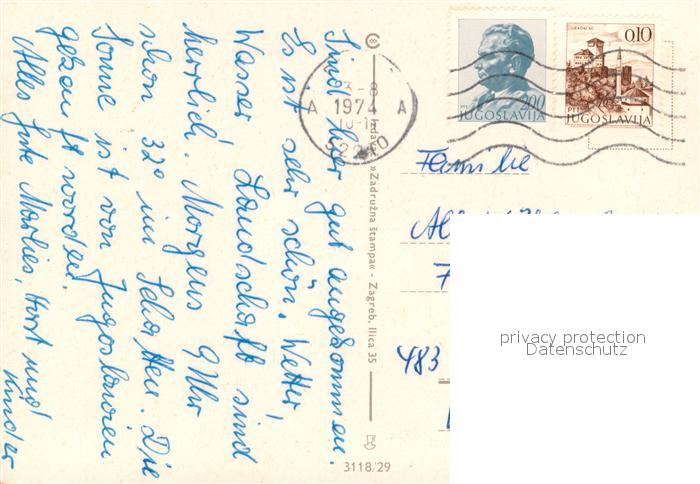 Sind hier gut angekommen.
Es ist sehr schön. Wetter,
Wasser, Landschaft sind
herrlich. Morgens 9 Uhr
schon 32° im Schatten. Die
Sonne ist von Jugoslawien
gekauft worden.
Alles Gute Marlies, Horst und
Kinder
»Zadružna štampa« - Zagreb, Ilica 35
3118/29
8
A 1974 A
PTT 2.00
JUGOSLAVIJA
GRADAČAC
0.10
PTT
JUGOSLAVIJA
Familie
483
privacy protection
Datenschutz